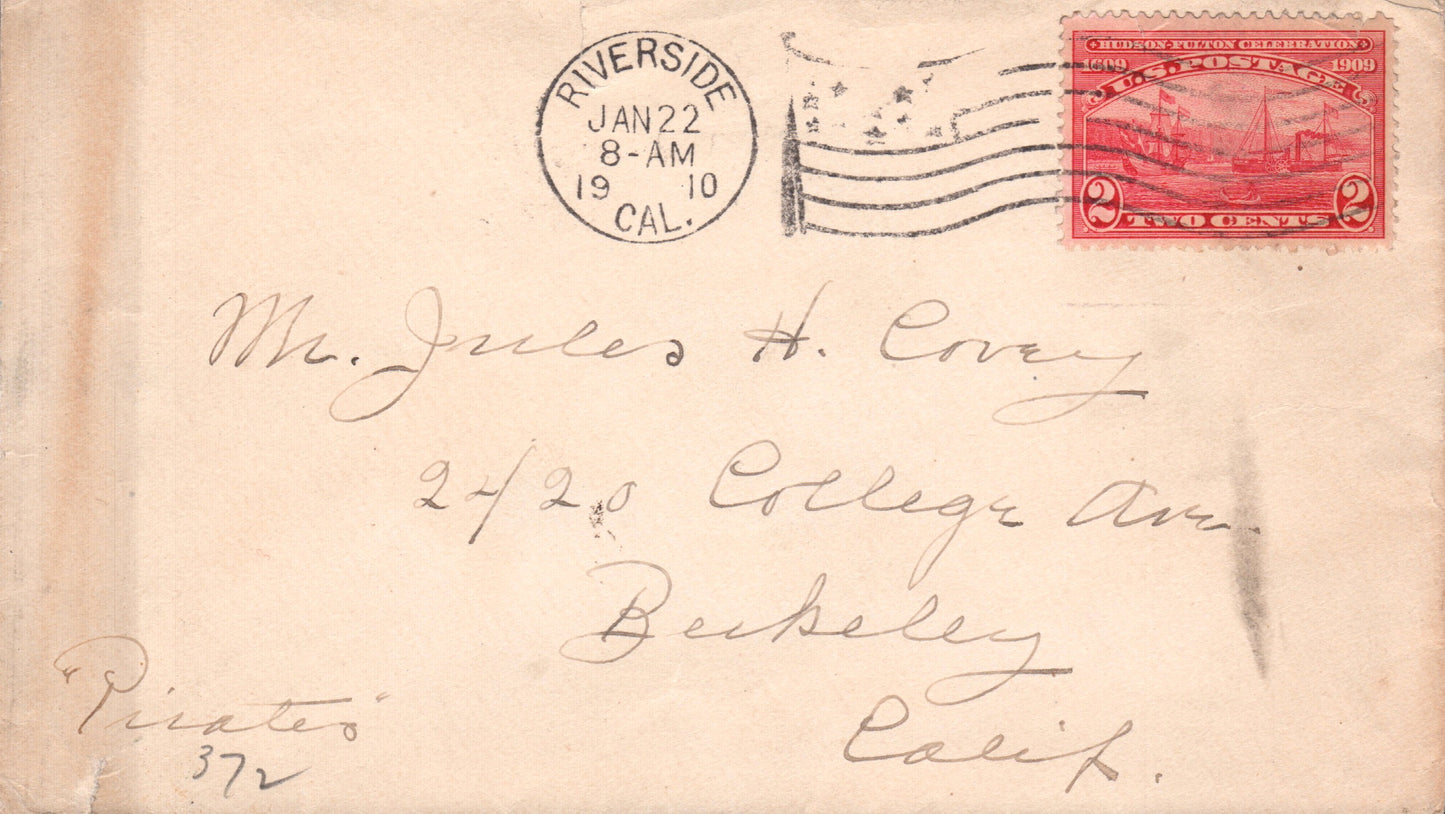 RIVERSIDE
JAN 22
8-AM
19 10
CAL.
HUDSON-FULTON CELEBRATION
1609 1909
U.S. POSTAGE
2 2
TWO CENTS
Mr. Jules H. Covey
2420 College Ave.
Berkeley
Calif.
"Pirates"
372